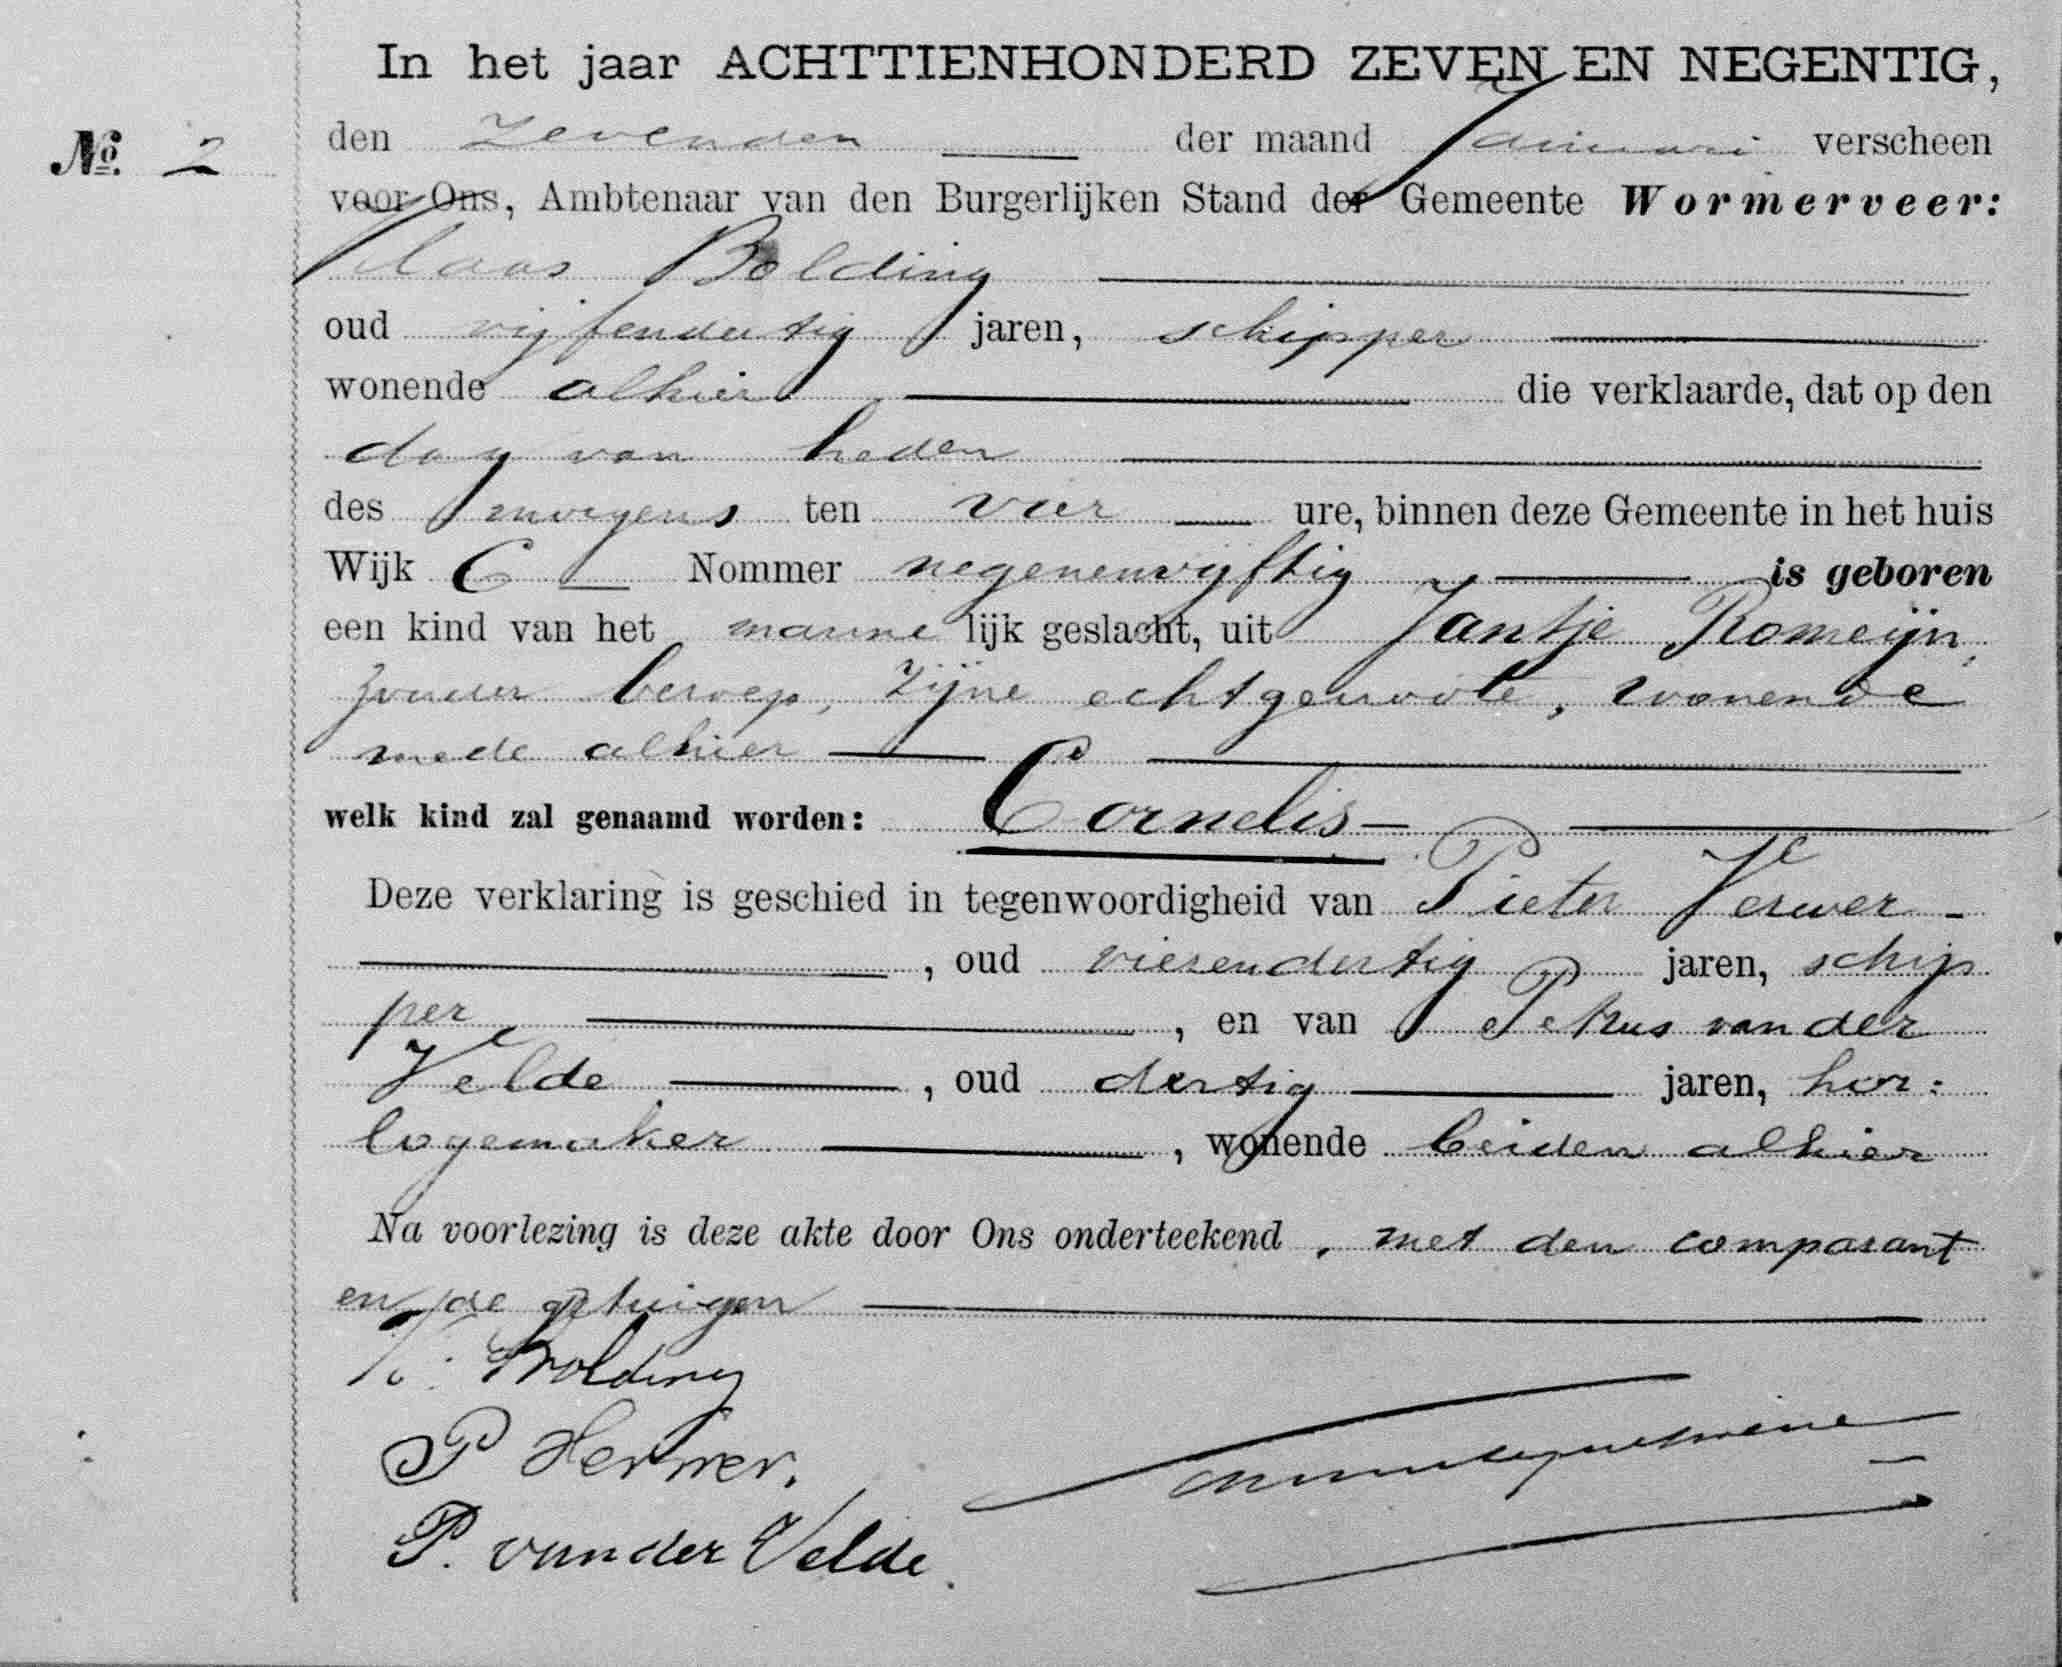 In het jaar ACHTTIENHONDERD ZEVEN EN NEGENTIG,
No. 2
den Zevenden der maand Januari verscheen
voor Ons, Ambtenaar van den Burgerlijken Stand der Gemeente Wormerveer:
Klaas Bolding
oud vijfendertig jaren, schipper
wonende alhier die verklaarde, dat op den
dag van heden
des morgens ten vier ure, binnen deze Gemeente in het huis
Wijk C Nommer negenenvijftig is geboren
een kind van het manne lijk geslacht, uit Jantje Romeijn,
zonder beroep, zijne echtgenoote, wonende
mede alhier
welk kind zal genaamd worden: Cornelis
Deze verklaring is geschied in tegenwoordigheid van Pieter Verwer
, oud vierendertig jaren, schip
per , en van Petrus van der
Velde , oud dertig jaren, hor:
logemaker , wonende beiden alhier
Na voorlezing is deze akte door Ons onderteekend , met den comparant
en de getuigen
K. Bolding
P Verwer.
P. van der Velde.